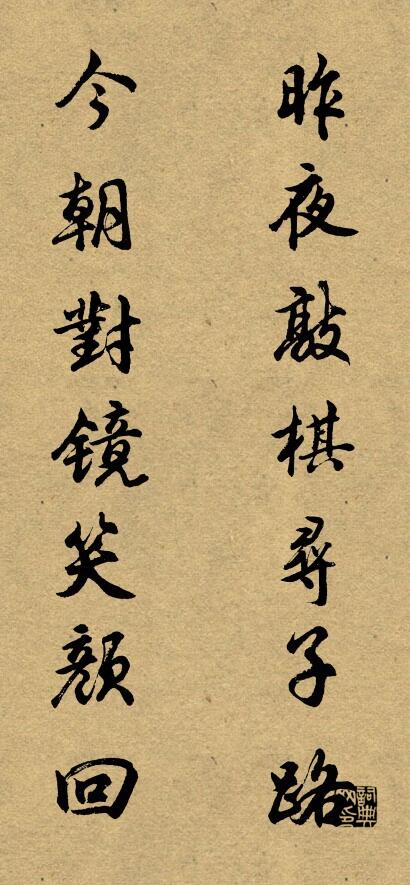 昨夜敲棋尋子路
今朝對镜笑顔回